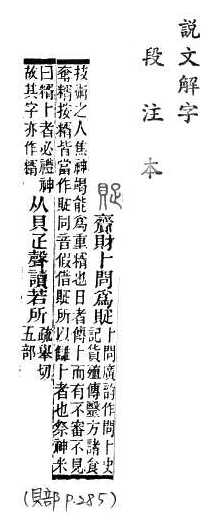 說文解字
段注本
齎財卜問爲
卜問廣韵作問卜史
記貨殖傳醫方諸食
技術之人焦神極能爲重糈也日者傳卜而有不審不見
奪糈按糈皆當作同音假借所以讎卜者也祭神米
曰糈卜者必禮神
故其字亦作糈
从貝疋聲讀若所
疏舉切
五部
(貝部 P.285)